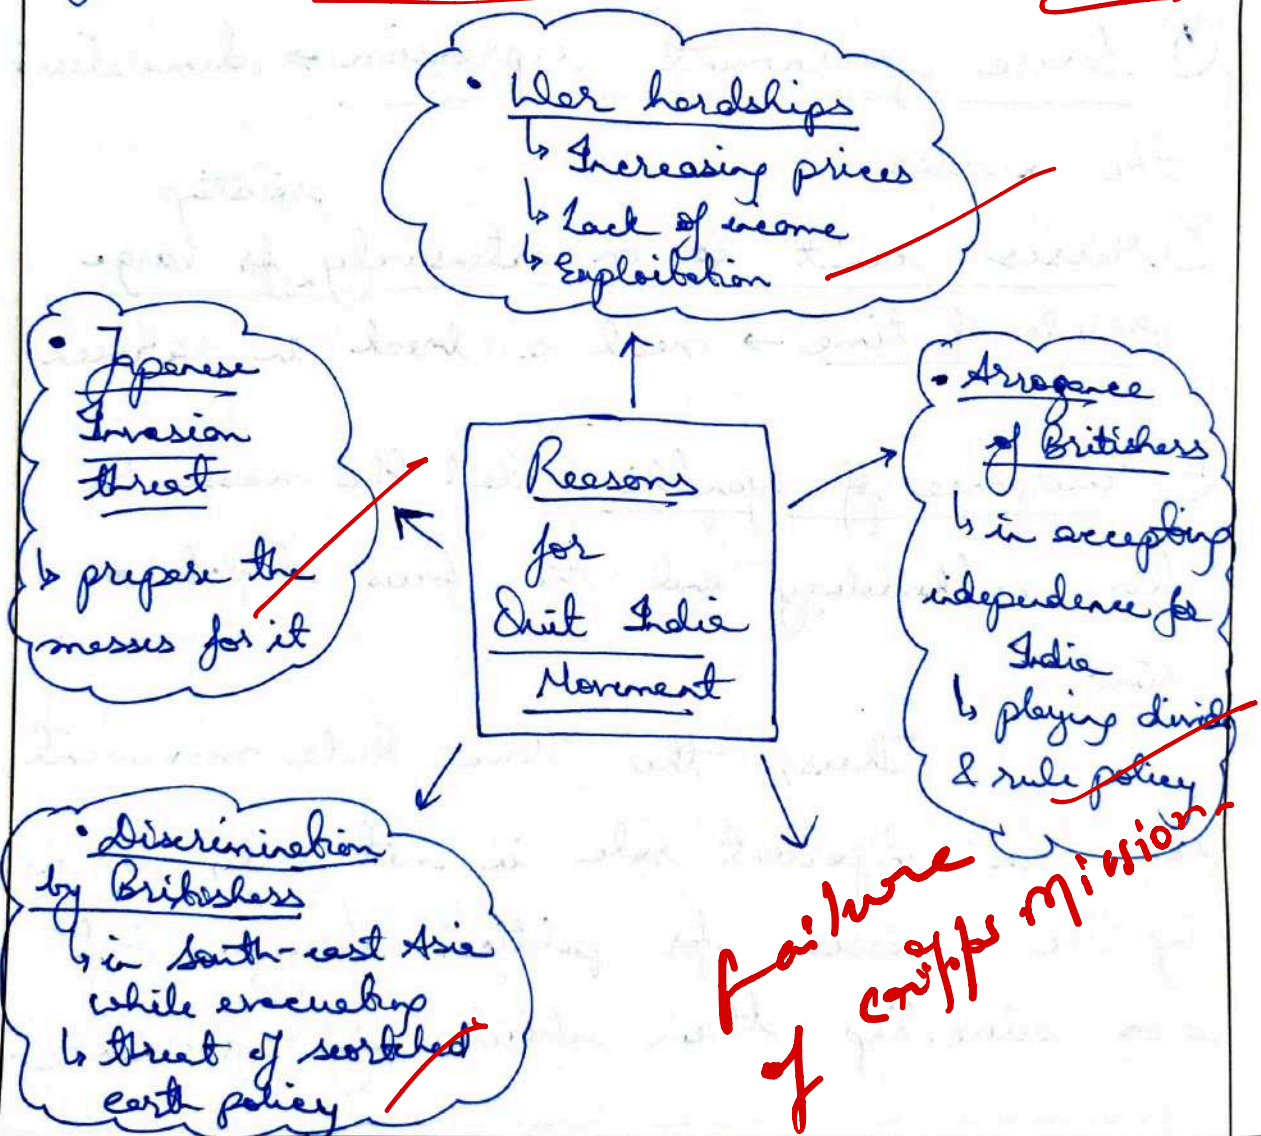 • War hardships
↳ Increasing prices
↳ Lack of income
↳ Exploitation
• Japanese
Invasion
threat
↳ prepare the
masses for it
Reasons
for
Quit India
Movement
• Arrogance
of Britishers
↳ in accepting
independence for
India
↳ playing divide
& rule policy
• Discrimination
by Britishers
↳ in South-east Asia
while evacuating
↳ threat of scorched
earth policy
Failure
of cripps Mission